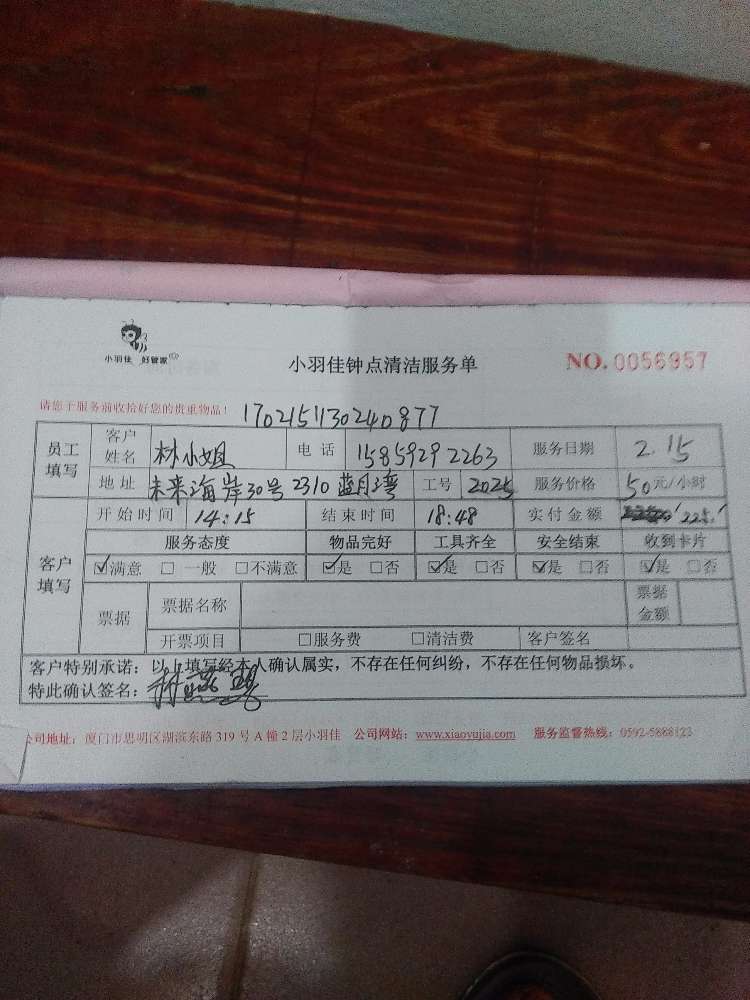 小羽佳 好管家
小羽佳钟点清洁服务单 NO.0056957
请您于服务前收拾好您的贵重物品! 1702151130240877
员工填写 客户姓名 林小姐 电话 15859292263 服务日期 2.15
地址 未来海岸30号2310蓝月湾 工号 2025 服务价格 50元/小时
客户填写 开始时间 14:15 结束时间 18:48 实付金额 225
服务态度 物品完好 工具齐全 安全结束 收到卡片
☑满意 □一般 □不满意 ☑是 □否 ☑是 □否 ☑是 □否 ☑是 □否
票据 票据名称 票据金额
开票项目 □服务费 □清洁费 客户签名
客户特别承诺:以上填写经本人确认属实,不存在任何纠纷,不存在任何物品损坏。
特此确认签名:
公司地址:厦门市思明区湖滨东路 319 号 A 幢 2 层小羽佳 公司网站:www.xiaoyujia.com 服务监督热线:0592-5888123